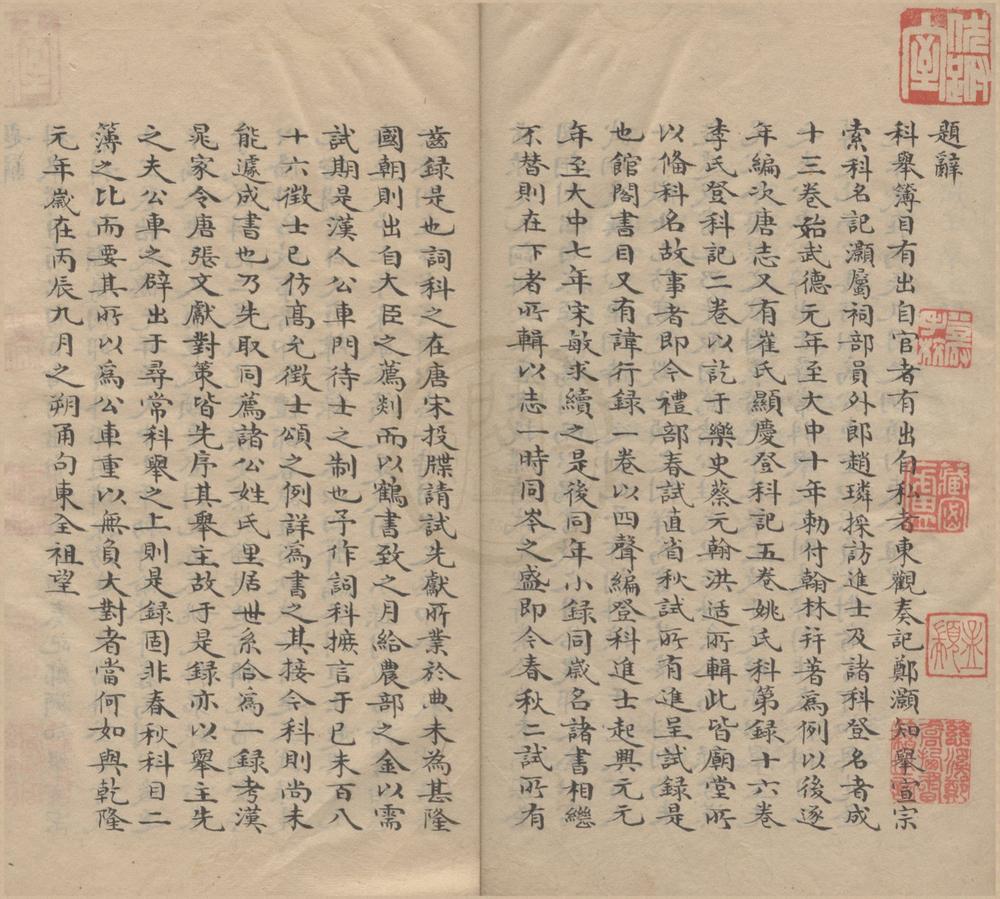 題辭
科舉簿目有出自官者有出自私者東觀奏記鄭灝知舉宣宗
索科名記灝屬祠部員外郎趙璘採訪進士及諸科登名者成
十三卷始武德元年至大中十年勅付翰林并著為例以後逐
年編次唐志又有崔氏顯慶登科記五卷姚氏科第錄十六卷
李氏登科記二卷以訖于樂史蔡元翰洪适所輯此皆廟堂所
以俻科名故事者即今禮部春試直省秋試所有進呈試録是
也館閣書目又有諱行録一卷以四聲編登科進士起興元元
年至大中七年宋敏求續之是後同年小録同歲名諸書相繼
不替則在下者所輯以志一時同岑之盛即今春秋二試所有
齒録是也詞科之在唐宋投牒請試先獻所業於典未為甚隆
國朝則出自大臣之薦剡而以鶴書致之月給農部之金以需
試期是漢人公車門待士之制也予作詞科摭言于已未百八
十六徵士已仿髙允徵士頌之例詳為書之其接今科則尚未
能遽成書也乃先取同薦諸公姓氏里居世系合為一録考漢
晁家令唐張文獻對策皆先序其舉主故于是録亦以舉主先
之夫公車之辟出于尋常科舉之上則是録固非春秋科目二
簿之比而要其所以為公車重以無負大對者當何如與乾隆
元年歲在丙辰九月之朔甬句東全祖望